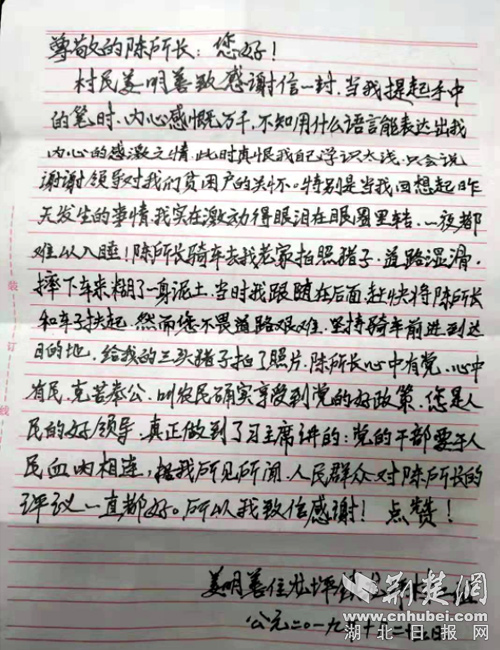 尊敬的陈所长：您好！
村民姜明善致感谢信一封，当我提起手中
的笔时，内心感慨万千，不知用什么语言能表达出我
内心的感激之情，此时真恨我自己学识太浅，只会说
谢谢领导对我们贫困户的关怀。特别是当我回想起昨
天发生的事情，我实在激动得眼泪在眼圈里转，一夜都
难以入睡！陈所长骑车去我老家拍照猪子，道路湿滑，
摔下车来糊了一身泥土，当时我跟随在后面，赶快将陈所长
和车子扶起，然而您不畏道路艰难，坚持骑车前进到达
目的地，给我的三头猪子拍了照片，陈所长心中有党，心中
有民，克苦奉公，叫农民确实享受到党的好政策，您是人
民的好领导，真正做到了习主席讲的：党的干部要于人
民血肉相连，据我所见所闻，人民群众对陈所长的
评议一直都好。所以我致信感谢！点赞！
姜明善住
公元二〇一九
装
订
线
荆楚网
www.cnhubei.com
湖北日报网